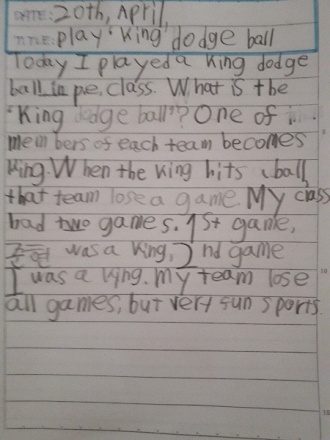 DATE: 20th, April,
TITLE: play 'king' dodge ball
Today I played a king dodge
ball in pe, class. What is the
'King dodge ball'? One of
members of each team becomes
king. When the king hits a ball,
that team lose a game. My class
had two games. 1st game,
was a king, 2nd game
I was a king. my team lose
all games, but very fun sports.